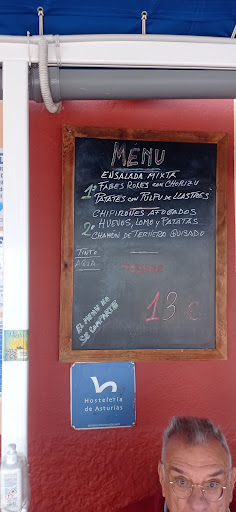 MENU
ENSALADA MIXTA
1º FABES ROXES CON CHORIZU
PATATES CON PULPU DE LLASTRES
CHIPIRONES AFOGADOS
2º HUEVOS, LOMO y PATATAS
CHAMON DE TERNERO GUISADO
TINTO
AGUA
POSTRE
13 €
EL MENU NO
SE COMPARTE
Hostelería
de Asturias